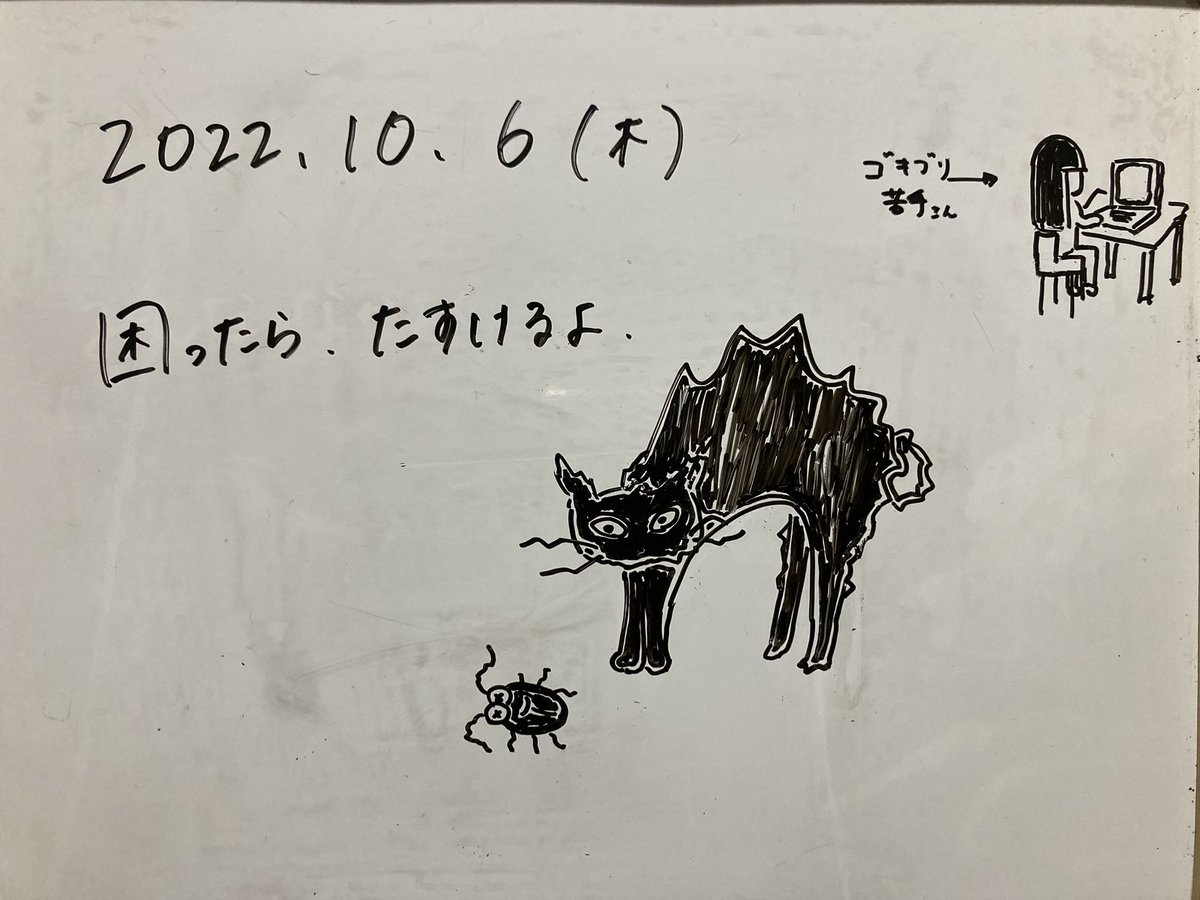 2022.10.6(木)
ゴキブリ
苦手さん
困ったら.たすけるよ.